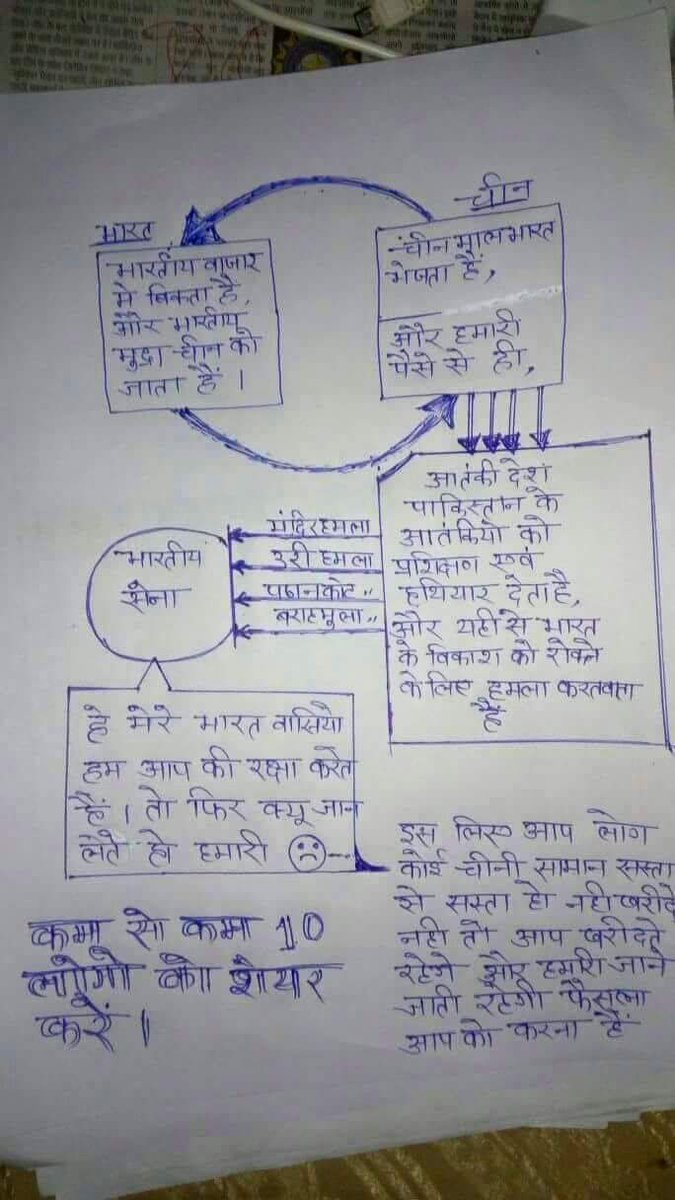 चीन
चीन माल भारत
भेजता हैं,
और हमारी
पैसे से ही,
भारत
भारतीय बाजार
मे बिकता है,
और भारतीय
मुद्रा चीन को
जाता हैं ।
आतंकी देश
पाकिस्तान के
आतंकियो को
प्रशिक्षण एवं
हथियार देता है,
और यही से भारत
के विकाश को रोकने
के लिए हमला करवाता
हैं
मंदिर हमला
उरी हमला
पठानकोट ,,
बराहमूला ,,
भारतीय
सेना
हे मेरे भारत वासियो
हम आप की रक्षा करते
हैं । तो फिर क्यू जान
लेते हो हमारी
इस लिए आप लोग
कोई चीनी सामान सस्ता
से सस्ता हो नही खरीदे
नही तो आप खरीदते
रहेगे और हमारी जाने
जाती रहेगी फैसला
आप को करना हैं
कम से कम 10
लोगो को शेयर
करें ।